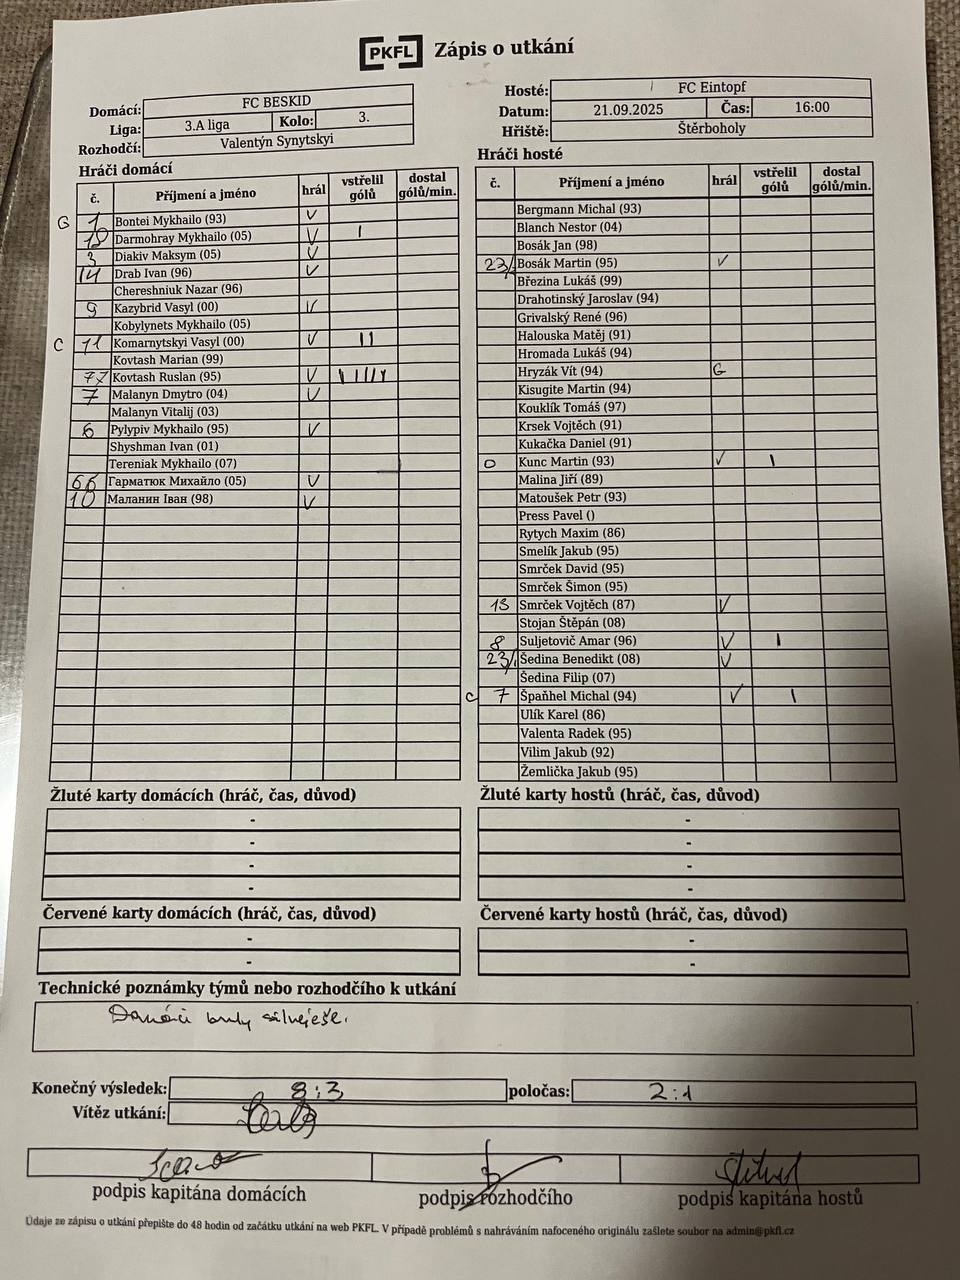 PKFL Zápis o utkání
Domácí: FC BESKID
Liga: 3.A liga Kolo: 3.
Rozhodčí: Valentýn Synytskyi
Hosté: FC Eintopf
Datum: 21.09.2025 Čas: 16:00
Hřiště: Štěrboholy
Hráči domácí
č. Příjmení a jméno hrál vstřelil gólů dostal gólů/min.
G 1 Bontei Mykhailo (93) V
Darmohray Mykhailo (05) V I
3 Diakiv Maksym (05) V
14 Drab Ivan (96) V
Chereshniuk Nazar (96)
9 Kazybrid Vasyl (00) V
Kobylynets Mykhailo (05)
C 11 Komarnytskyi Vasyl (00) V II
Kovtash Marian (99)
77 Kovtash Ruslan (95) V IIIII
7 Malanyn Dmytro (04) V
Malanyn Vitalij (03)
6 Pylypiv Mykhailo (95) V
Shyshman Ivan (01)
Tereniak Mykhailo (07)
66 Гарматюк Михайло (05) V
10 Маланин Іван (98) V
Hráči hosté
č. Příjmení a jméno hrál vstřelil gólů dostal gólů/min.
Bergmann Michal (93)
Blanch Nestor (04)
Bosák Jan (98)
23/ Bosák Martin (95) V
Březina Lukáš (99)
Drahotinský Jaroslav (94)
Grivalský René (96)
Halouska Matěj (91)
Hromada Lukáš (94)
Hryzák Vít (94) G
Kisugite Martin (94)
Kouklík Tomáš (97)
Krsek Vojtěch (91)
Kukačka Daniel (91)
0 Kunc Martin (93) V I
Malina Jiří (89)
Matoušek Petr (93)
Press Pavel ()
Rytych Maxim (86)
Smelík Jakub (95)
Smrček David (95)
Smrček Šimon (95)
13 Smrček Vojtěch (87) V
Stojan Štěpán (08)
8 Suljetovič Amar (96) V I
23/ Šedina Benedikt (08) V
Šedina Filip (07)
C 7 Špaňhel Michal (94) V I
Ulík Karel (86)
Valenta Radek (95)
Vilim Jakub (92)
Žemlička Jakub (95)
Žluté karty domácích (hráč, čas, důvod)
-
-
-
-
Žluté karty hostů (hráč, čas, důvod)
-
-
-
-
Červené karty domácích (hráč, čas, důvod)
-
-
Červené karty hostů (hráč, čas, důvod)
-
-
Technické poznámky týmů nebo rozhodčího k utkání
Domácí byly
Konečný výsledek: 8:3 poločas: 2:1
Vítěz utkání:
podpis kapitána domácích podpis rozhodčího podpis kapitána hostů
Údaje ze zápisu o utkání přepište do 48 hodin od začátku utkání na web PKFL. V případě problémů s nahráváním nafoceného originálu zašlete soubor na admin@pkfl.cz